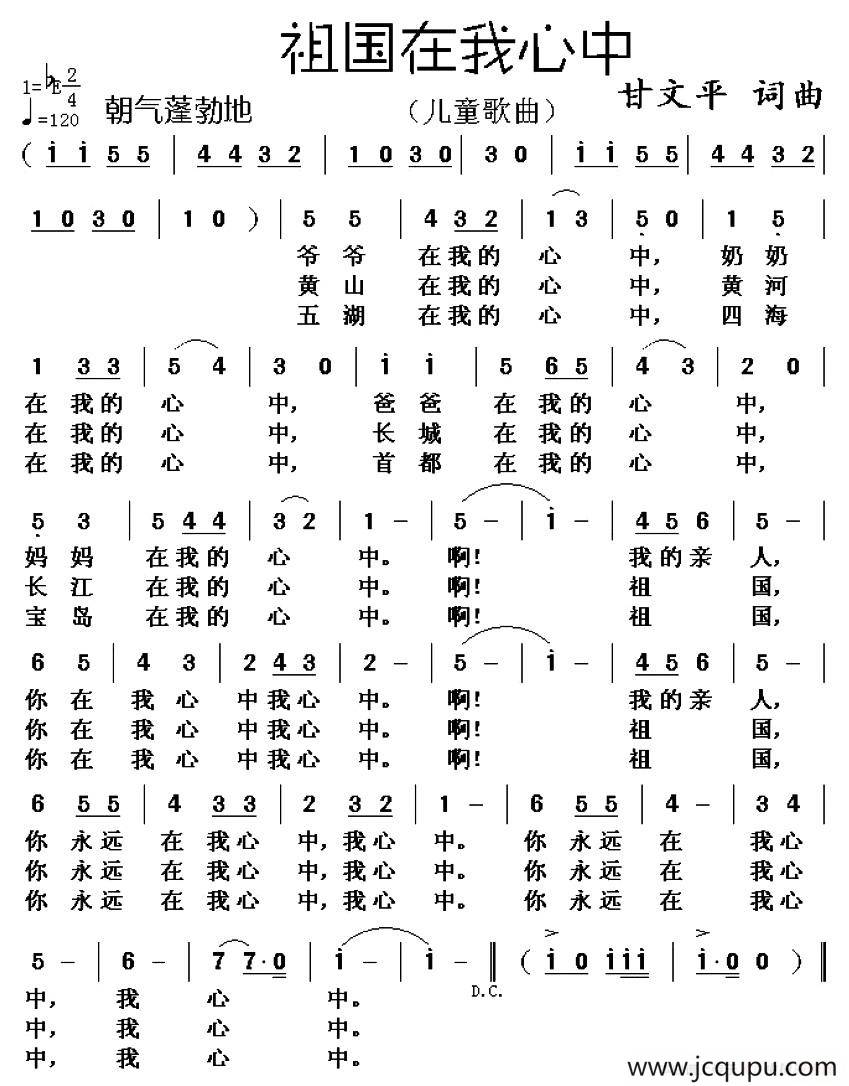 祖国在我心中
1=♭E 2/4
♩=120 朝气蓬勃地 （儿童歌曲） 甘文平 词曲
( i i 5 5 | 4 4 3 2 | 1 0 3 0 | 3 0 | i i 5 5 | 4 4 3 2 |
1 0 3 0 | 1 0 ) | 5 5 | 4 3 2 | 1 3 | 5 0 | 1 5 |
爷爷 在我的 心 中， 奶奶
黄山 在我的 心 中， 黄河
五湖 在我的 心 中， 四海
1 3 3 | 5 4 | 3 0 | i i | 5 6 5 | 4 3 | 2 0 |
在 我的 心 中， 爸爸 在 我的 心 中，
在 我的 心 中， 长城 在 我的 心 中，
在 我的 心 中， 首都 在 我的 心 中，
5 3 | 5 4 4 | 3 2 | 1 - | 5 - | i - | 4 5 6 | 5 - |
妈妈 在我的 心 中。 啊！ 我的亲 人，
长江 在我的 心 中。 啊！ 祖 国，
宝岛 在我的 心 中。 啊！ 祖 国，
6 5 | 4 3 | 2 4 3 | 2 - | 5 - | i - | 4 5 6 | 5 - |
你在 我心 中我心 中。 啊！ 我的亲 人，
你在 我心 中我心 中。 啊！ 祖 国，
你在 我心 中我心 中。 啊！ 祖 国，
6 5 5 | 4 3 3 | 2 3 2 | 1 - | 6 5 5 | 4 - | 3 4 |
你 永远 在 我心 中，我心 中。 你 永远 在 我心
你 永远 在 我心 中，我心 中。 你 永远 在 我心
你 永远 在 我心 中，我心 中。 你 永远 在 我心
5 - | 6 - | 7 7·0 | i - | i - ‖ ( > i 0 i i i | > i·0 0 ) ‖
D.C.
中， 我 心 中。
中， 我 心 中。
中， 我 心 中。
www.jcqupu.com